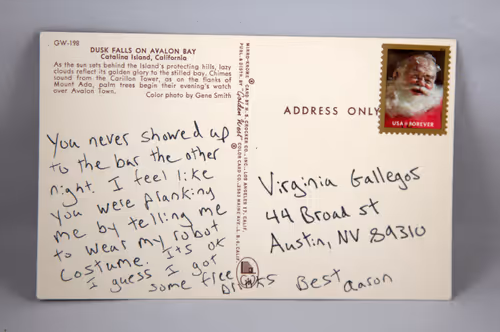 GW-198
DUSK FALLS ON AVALON BAY
Catalina Island, California
As the sun sets behind the Island's protecting hills, lazy
clouds reflect its golden glory to the stilled bay. Chimes
sound from the Carillon Tower, as on the flanks of
Mount Ada, palm trees begin their evening's watch
over Avalon Town.
Color photo by Gene Smith
You never showed up
to the bar the other
night. I feel like
you were planking
me by telling me
to wear my robot
costume. It's ok
I guess I got
some free
Drinks
Best
Aaron
Golden West
ADDRESS ONLY
USA FOREVER
Virginia Gallegos
44 Broad st
Austin, NV 89310